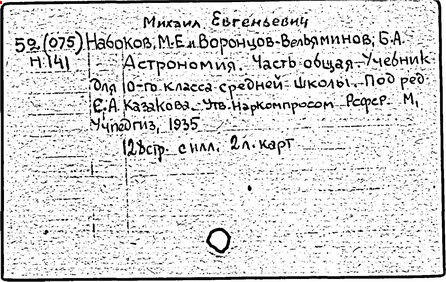 Михаил Евгеньевич
52(075) Набоков, М.Е. и Воронцов-Вельяминов, Б.А.
Н.141 Астрономия. Часть общая. Учебник
для 10-го класса средней школы. Под ред.
Е.А. Казакова. Утв. Наркомпросом РСФСР. М,
Учпедгиз, 1935
128стр. с илл. 2 л. карт